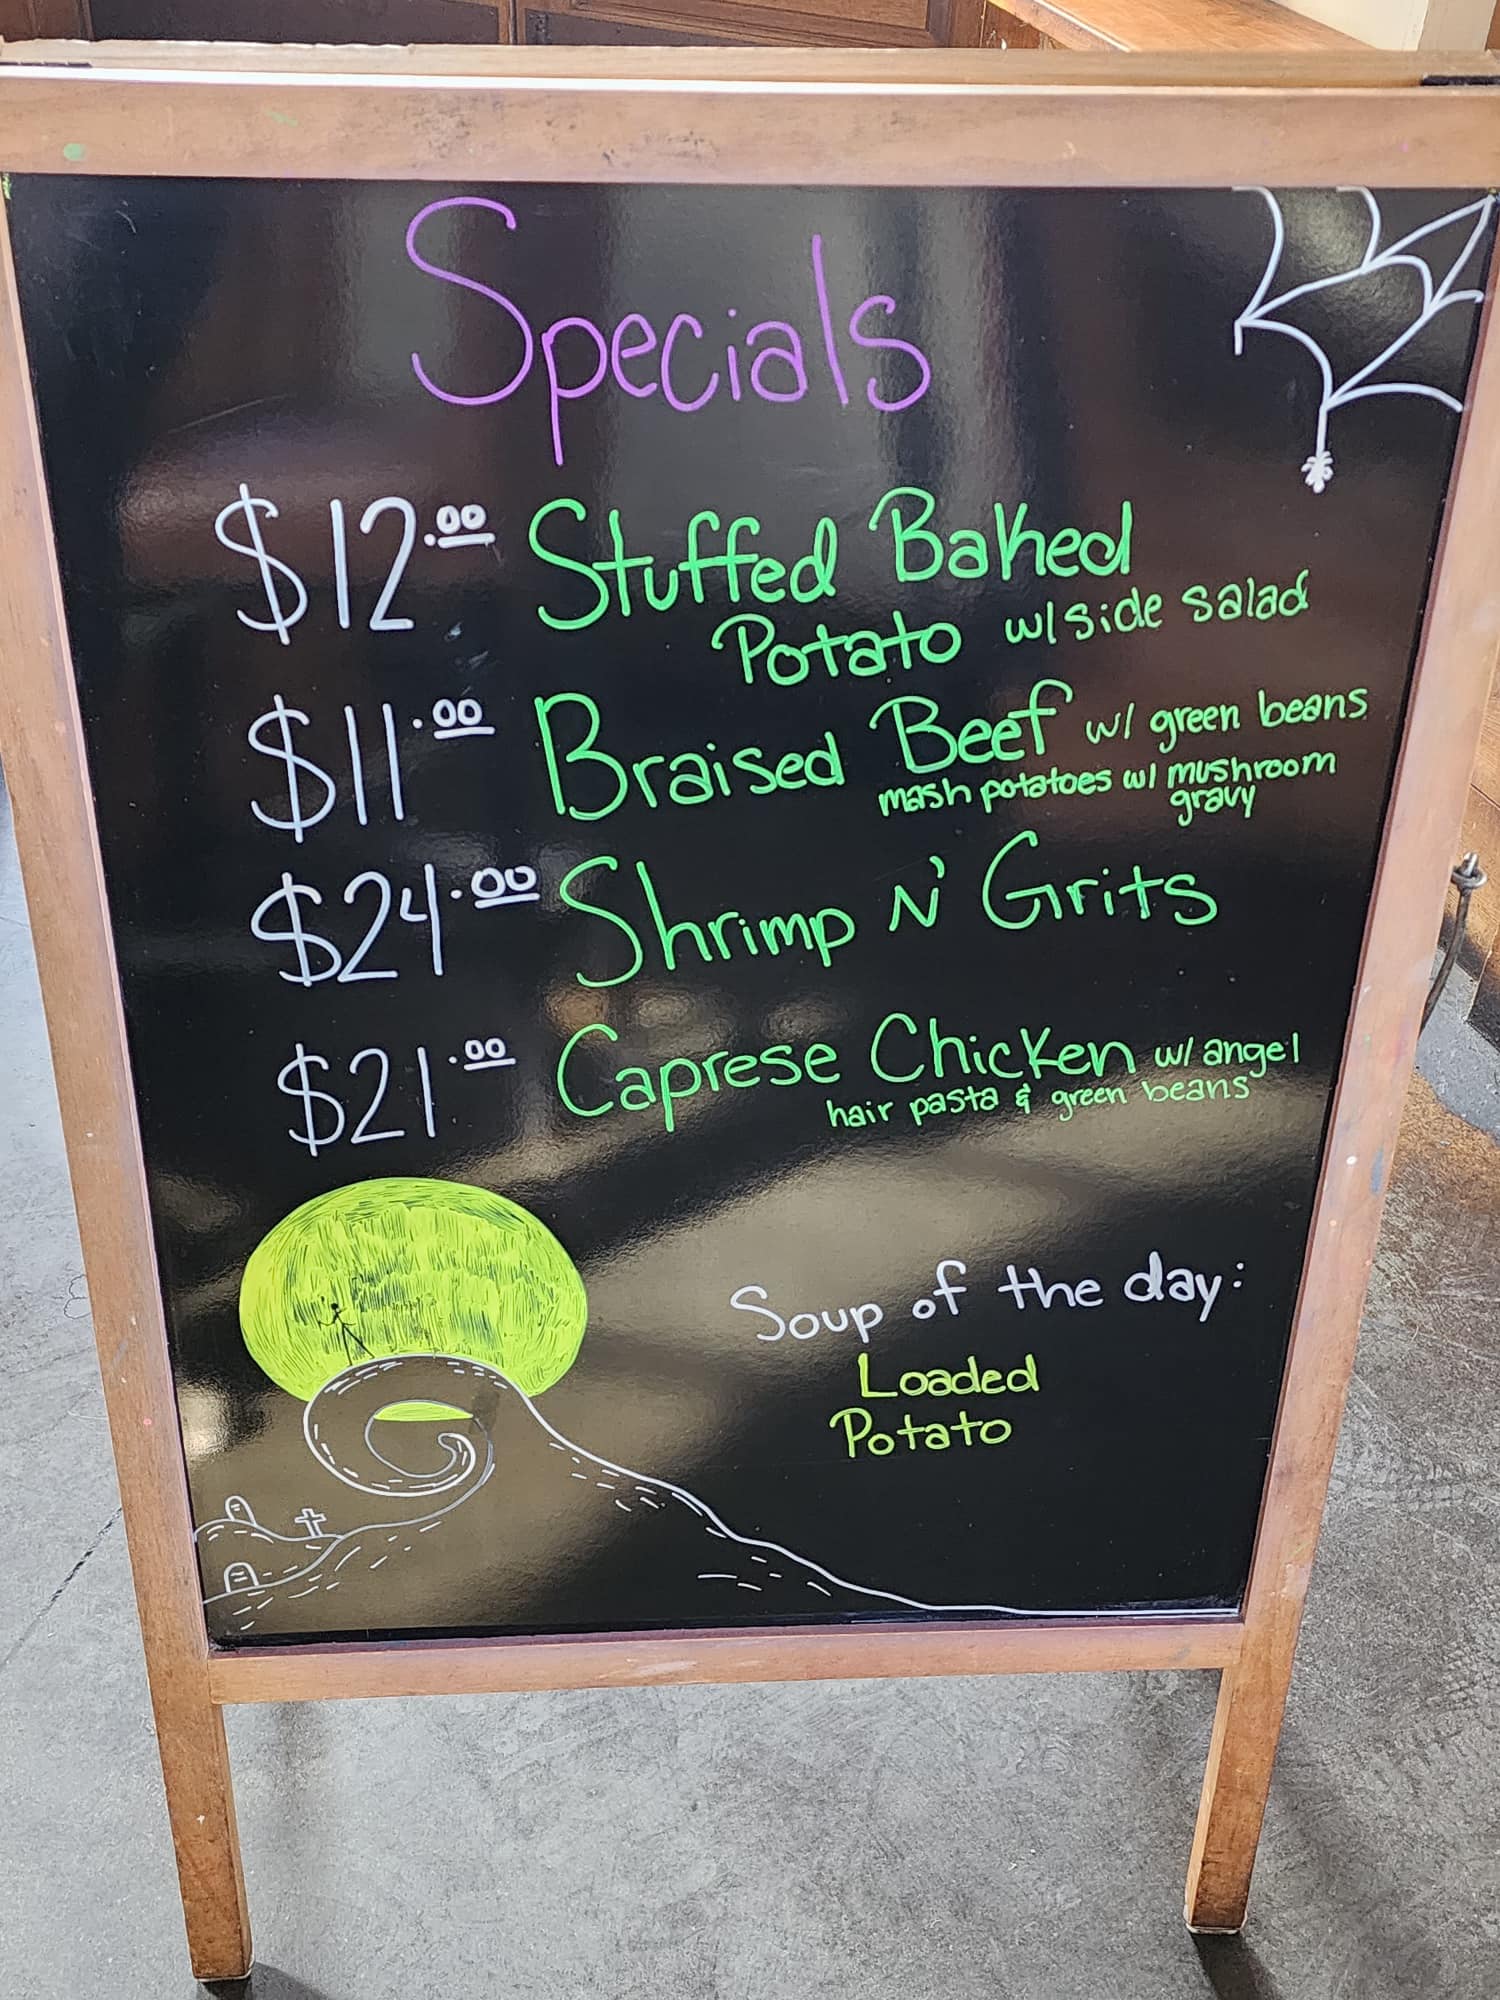 Specials
$12.00 Stuffed Baked
Potato w/ side salad
$11.00 Braised Beef w/ green beans
mash potatoes w/ mushroom
gravy
$24.00 Shrimp N' Grits
$21.00 Caprese Chicken w/ angel
hair pasta & green beans
Soup of the day:
Loaded
Potato